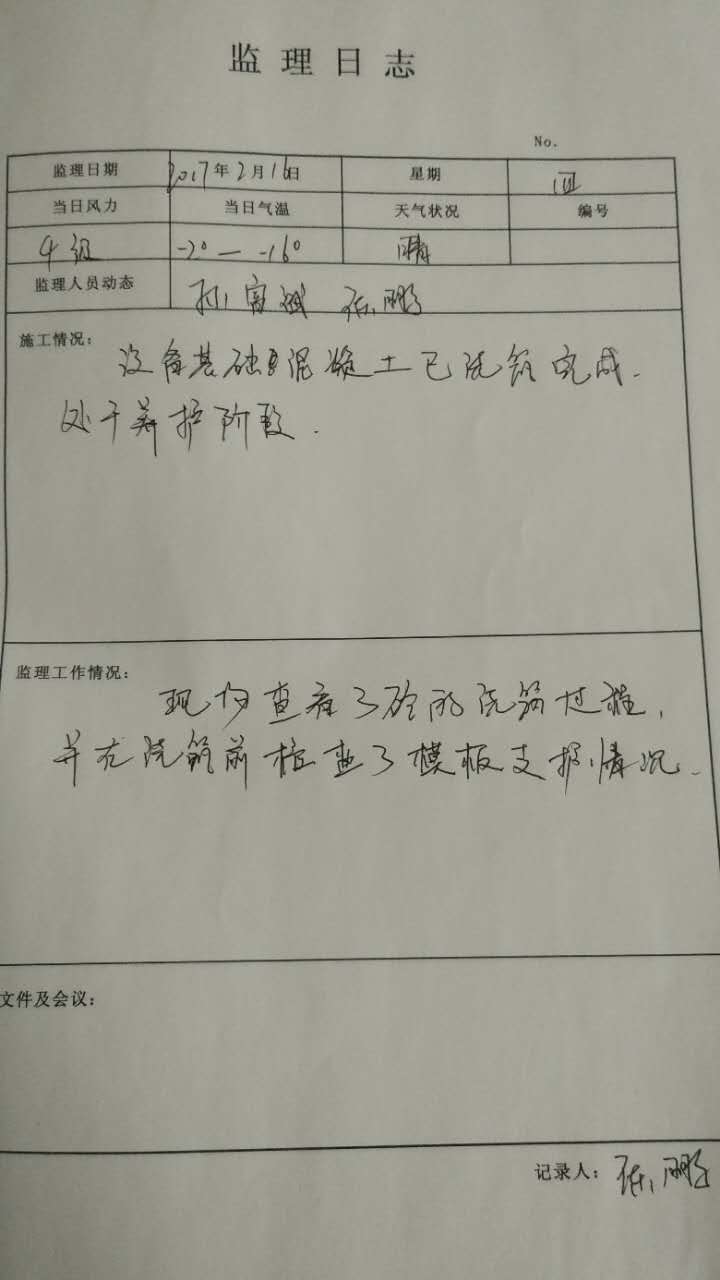 监理日志
No.
监理日期 2017年2月16日 星期 四
当日风力 当日气温 天气状况 编号
4级 -2° — -16° 晴
监理人员动态 孙富斌 张鹏
施工情况: 设备基础混凝土已浇筑完成.
处于养护阶段.
监理工作情况:
现场查看了砼的浇筑过程,
并在浇筑前检查了模板支护情况.
文件及会议:
记录人: 张鹏